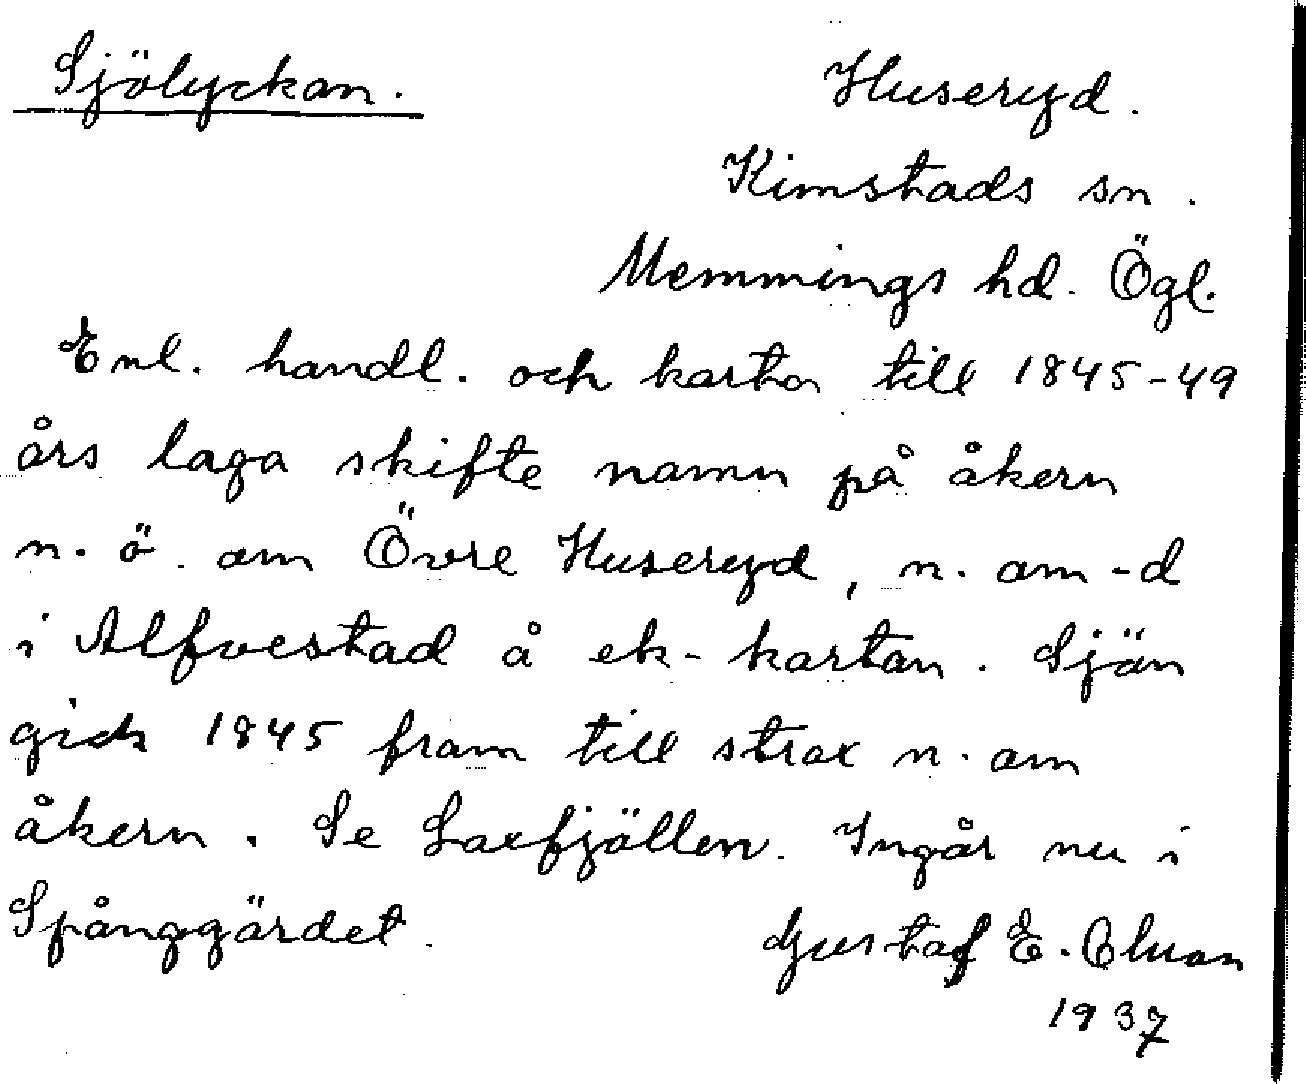 Sjölyckan.
Huseryd.
Kimstads sn.
Memmings hd. Ögl.
Enl. handl. och karta till 1845-49
års laga skifte namn på åkern
n. ö. om Övre Huseryd, n. om -d
i Alfvestad å ek-kartan. Sjön
gick 1845 fram till strax n. om
åkern. Se Laxfjällen. Ingår nu i
Spånggärdet.
Gustaf E.
1937